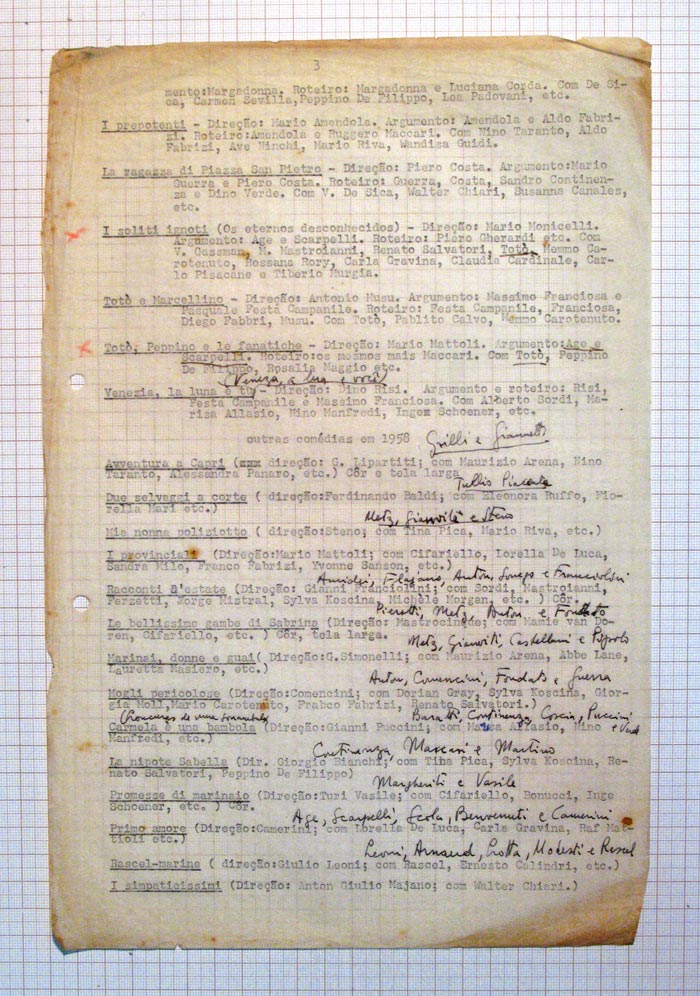 3
mento:Margadonna. Roteiro: Margadonna e Luciana Corda. Com De Si-
ca, Carmen Sevilla,Peppino De Filippo, Lea Padovani, etc.
I prepotenti - Direção: Mario Amendola. Argumento: Amendola e Aldo Fabri-
zi. Roteiro:Amendola e Ruggero Maccari. Com Nino Taranto, Aldo
Fabrizi, Ave Ninchi, Mario Riva, Wandisa Guidi.
La ragazza di Piazza San Pietro - Direção: Piero Costa. Argumento:Mario
Guerra e Piero Costa. Roteiro: Guerra, Costa, Sandro Continen-
za e Dino Verde. Com V. De Sica, Walter Chiari, Susanna Canales,
etc.
I soliti ignoti (Os eternos desconhecidos) - Direção: Mario Monicelli.
Argumento: Age e Scarpelli. Roteiro: Piero Gherandi etc. Com
V. Gassman, M. Mastroianni, Renato Salvatori, Totò, Memmo Ca-
rotenuto, Rossana Rory, Carla Gravina, Claudia Cardinale, Car-
lo Pisacane e Tiberio Murgia.
Totò e Marcellino - Direção: Antonio Musu. Argumento: Massimo Franciosa e
Pasquale Festa Campanile. Roteiro: Festa Campanile, Franciosa,
Diego Fabbri, Musu. Com Totò, Pablito Calvo, Memmo Carotenuto.
Totò, Peppino e le fanatiche - Direção: Mario Mattoli. Argumento:Age e
Scarpelli. Roteiro:os mesmos mais Maccari. Com Totò, Peppino
De Filippo, Rosalia Maggio etc.
(Veneza, a lua e você)
Venezia, la luna e tu - Direção: Dino Risi. Argumento e roteiro: Risi,
Festa Campanile e Massimo Franciosa. Com Alberto Sordi, Ma-
risa Allasio, Nino Manfredi, Ingex Schoener, etc.
outras comédias em 1958 Grilli e Giannetti
Avventura a Capri (xxx direção: G. Lipartiti; com Maurizio Arena, Nino
Taranto, Alessandra Panaro, etc.) Côr e tela larga
Tullio
Due selvaggi a corte ( direção:Ferdinando Baldi; com Eleonora Ruffo, Fio-
rella Mari etc.)
Metz, Gianviti e Steno
Mia nonna poliziotto ( direção:Steno; com Tina Pica, Mario Riva, etc.)
I provinciali (Direção:Mario Mattoli; com Cifariello, Lorella De Luca,
Sandra Milo, Franco Fabrizi, Yvonne Sanson, etc.)
Amidei, Flajano, Anton, Sonego e Franciolini
Racconti D'estate (Direção: Gianni Franciolini; com Sordi, Mastroianni,
Ferzetti, Jorge Mistral, Sylva Koscina, Michèle Morgan, etc.) Côr.
Pierotti, Metz, Anton e Fondato
Le bellissime gambe di Sabrina (Direção: Mastrocinque; com Mamie van Do-
ren, Cifariello, etc. ) Côr, tela larga.
Metz, Gianviti, Castellani e
Marinai, donne e guai( Direção:G.Simonelli; com Maurizio Arena, Abbe Lane,
Lauretta Masiero, etc.)
Anton, Comencini, Fondato e Guerra
Mogli pericolose (Direção:Comencini; com Dorian Gray, Sylva Koscina, Gior-
gia Moll,Mario Carotenuto, Frabco Fabrizi, Renato Salvatori.)
Baratti, Continenza, Coscia, Puccini
e Verde
(Romances de uma sonambula)
Carmela è una bambola (Direção:Gianni Puccini; com Marisa Allasio, Nino
Manfredi, etc.)
Continenza, Maccari e Martino
La nipote Sabella (Dir. Giorgio Bianchi; com Tina Pica, Sylva Koscina, Re-
nato Salvatori, Peppino De Filippo)
Margheriti e Vasile
Promesse di marinaio (Direção:Turi Vasile; com Cifariello, Bonucci, Inge
Schoener, etc. ) Côr.
Age, Scarpelli, Scola, Benvenuti e Camerini
Primo amore (Direção:Camerini; com Lorella De Luca, Carla Gravina, Raf Mat-
tioli etc.)
Leoni, Arnaud, Grotta, Modesti e Rascel
Rascel-marine ( direção:Giulio Leoni; com Rascel, Ernesto Calindri, etc.)
I simpaticissini (Direção: Anton Giulio Majano; com Walter Chiari.)